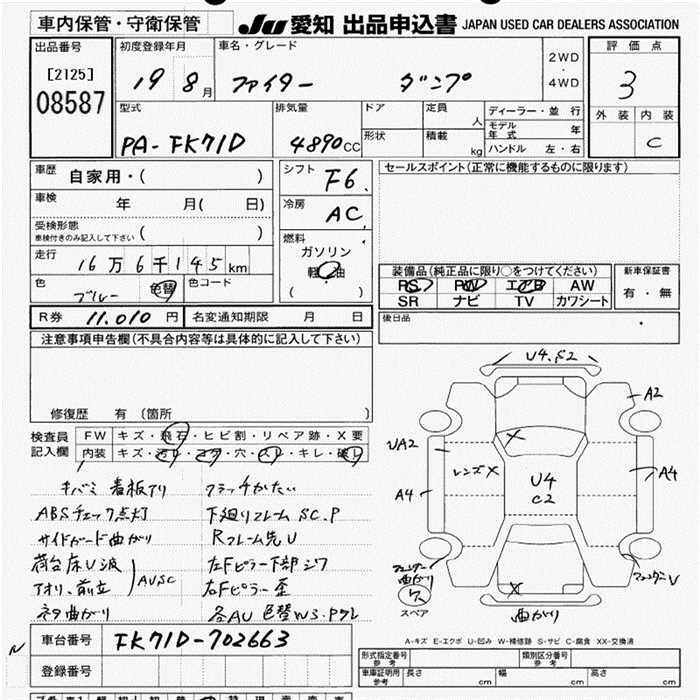 車内保管・守衛保管
JU 愛知 出品申込書 JAPAN USED CAR DEALERS ASSOCIATION
出品番号
[2125]
08587
初度登録年月
19 8月
車名・グレード
ファイター ダンプ
2WD
・
4WD
評価点
3
外装 内装
C
型式
PA-FK71D
排気量
4890cc
ドア
形状
定員
人
積載
kg
ディーラー・並行
モデル年式 年
ハンドル 左・右
車歴
自家用・( )
車検
年 月( 日)
受検形態
車検付きのみ記入して下さい ( )
走行
16万6千145km
色
ブルー
色替
色コード
シフト
F6
冷房
AC
燃料
ガソリン
軽・油
( )
セールスポイント(正常に機能するものに限ります)
装備品(純正品に限り○をつけてください)
PS PW エアB AW
SR ナビ TV カワシート
新車保証書
有・無
R券 11,010円
名変通知期限 月 日
後日品
注意事項申告欄(不具合内容等は具体的に記入して下さい)
修復歴 有(箇所 )
検査員記入欄
FW キズ・飛石・ヒビ割・リペア跡・X要
内装 キズ・汚レ・コゲ・穴・スレ・キレ・破レ
キバミ 看板アリ クラッチかたい
ABSチェック点灯 下廻りフレームSC.P
サイドガード曲がり Rフレーム先U
荷台床U波 左Fピラー下部シワ
アオリ、前立 AUSC 右Fピラー歪
ネタ曲がり 各AU 色替WS.Pクレ
U4.S2
A2
UA2
レンズX
U4
C2
A4
A4
フェンダー曲がり
フェンダーU
ス
スペア
曲がり
A-キズ E-エクボ U-凹み W-補修跡 S-サビ C-腐食 XX-交換済
車台番号 FK71D-702663
登録番号
形式指定番号 参考
類別区分番号 参考
車庫証明用 参考 長さ cm 幅 cm 高さ cm